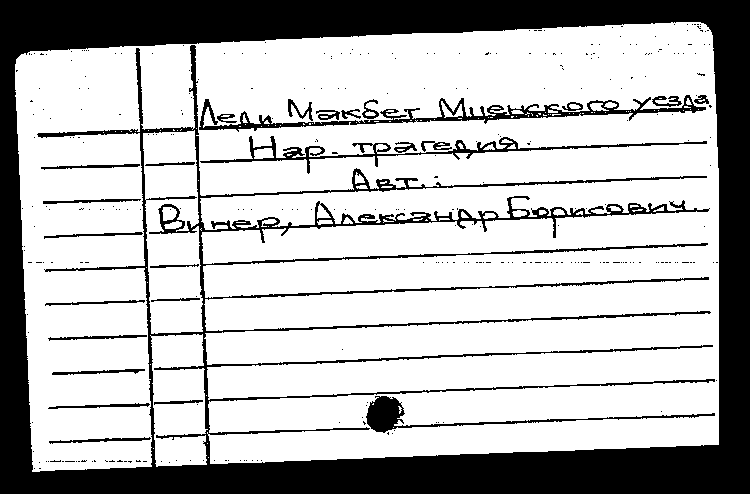 Леди Макбет Мценского уезда
Нар. трагедия.
Авт.:
Винер, Александр Борисович.